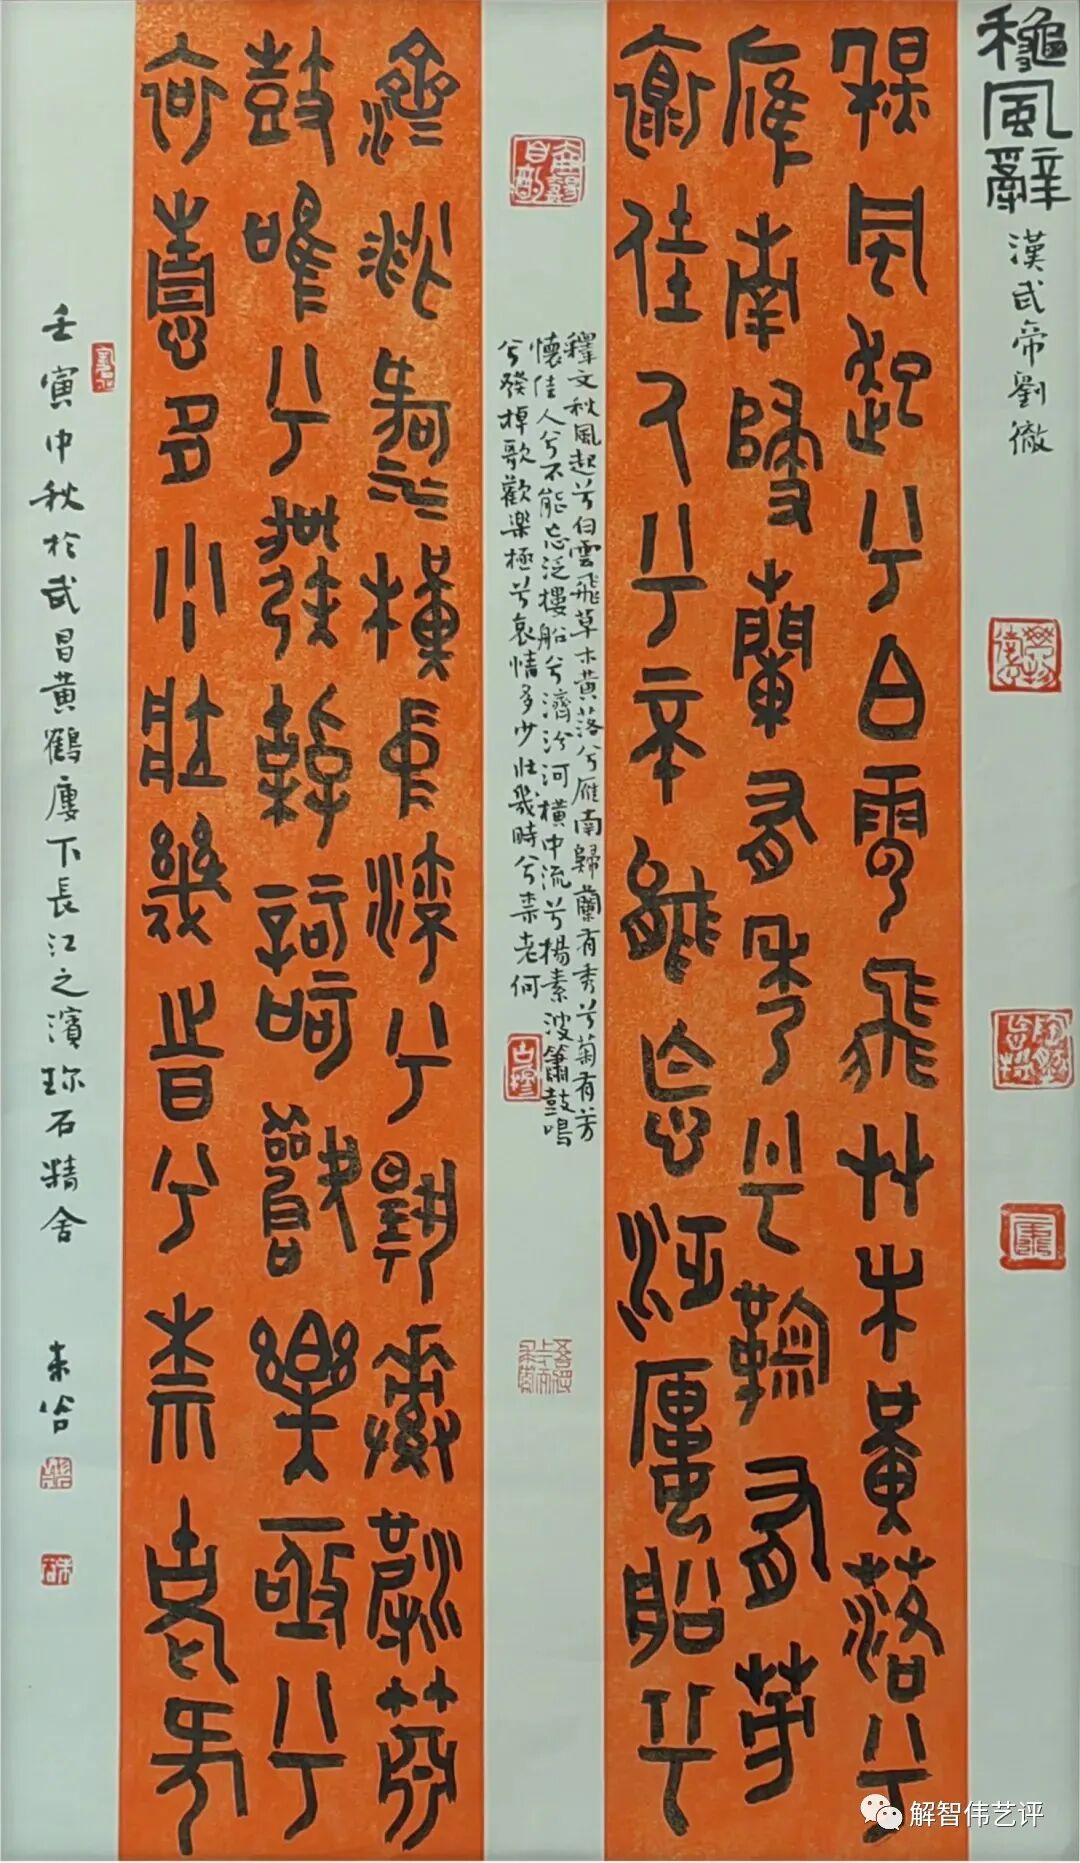 穐風辭 漢武帝劉徹
秋風起兮白雲飛艸木黃落兮
雁南歸蘭有秀兮菊有芳
懷佳人兮不能忘泛樓船兮
釋文秋風起兮白雲飛草木黃落兮雁南歸蘭有秀兮菊有芳
懷佳人兮不能忘泛樓船兮濟汾河橫中流兮揚素波簫鼓鳴
兮發棹歌歡樂極兮哀情多少壯幾時兮柰老何
濟汾河橫中流兮揚素波簫
鼓鳴兮發棹歌歡樂極兮
哀情多少壯幾時兮柰老何
壬寅中秋於武昌黃鶴廔下長江之濱珎石精舍
解智伟艺评